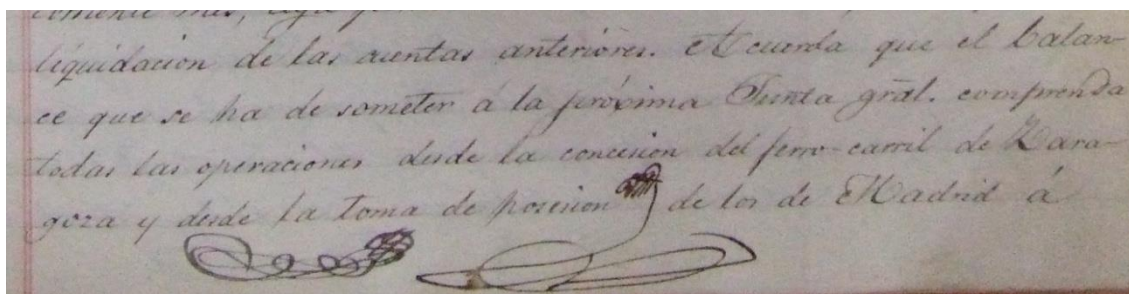 liquidacion de las cuentas anteriores. Acuerda que el balan-
ce que se ha de someter á la próxima Junta gral. comprenda
todas las operaciones desde la concesion del ferro-carril de Zara-
goza y desde la toma de posesion de los de Madrid á